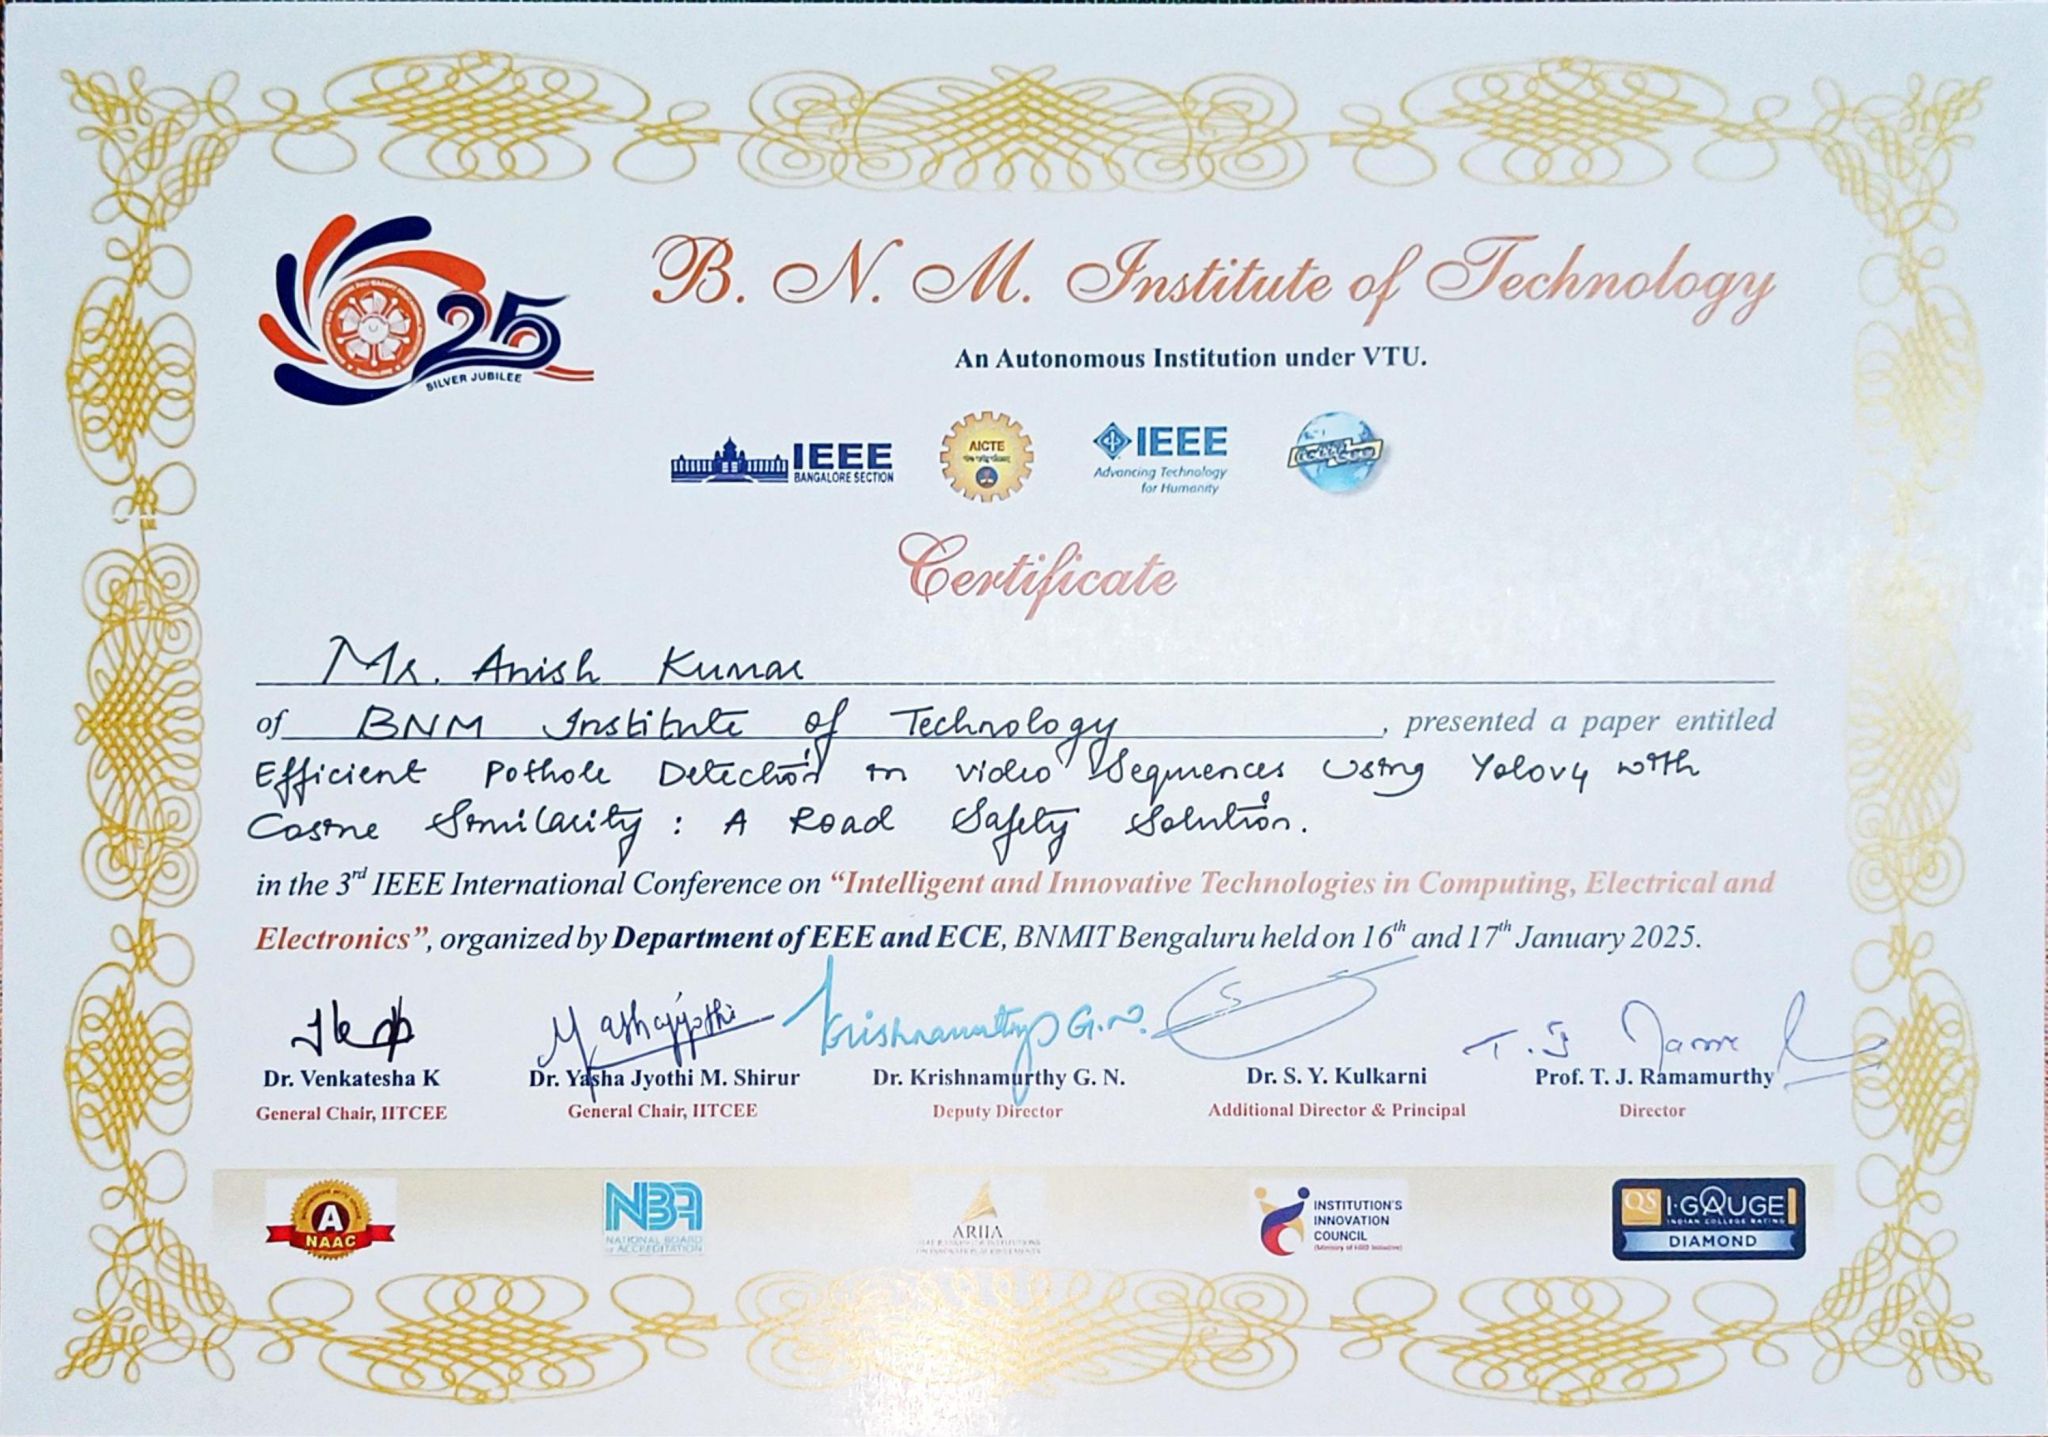 B. N. M. Institute of Technology
An Autonomous Institution under VTU.
25
SILVER JUBILEE
IEEE
BANGALORE SECTION
AICTE
IEEE
Advancing Technology
for Humanity
Certificate
Mr. Anish Kumar
of BNM Institute of Technology, presented a paper entitled
Efficient Pothole Detection in video Sequences Using Yolov4 with
Cosine Similarity : A Road Safety Solution.
in the 3rd IEEE International Conference on “Intelligent and Innovative Technologies in Computing, Electrical and
Electronics”, organized by Department of EEE and ECE, BNMIT Bengaluru held on 16th and 17th January 2025.
Yashajyothi
Krishnamurthy G.N.
Dr. Venkatesha K
General Chair, IITCEE
Dr. Yasha Jyothi M. Shirur
General Chair, IITCEE
Dr. Krishnamurthy G. N.
Deputy Director
Dr. S. Y. Kulkarni
Additional Director & Principal
Prof. T. J. Ramamurthy
Director
A
NAAC
NBA
NATIONAL BOARD
of ACCREDITATION
ARIIA
INSTITUTION'S
INNOVATION
COUNCIL
(Ministry of HRD Initiative)
QS I·GAUGE
INDIAN COLLEGE RATING
DIAMOND